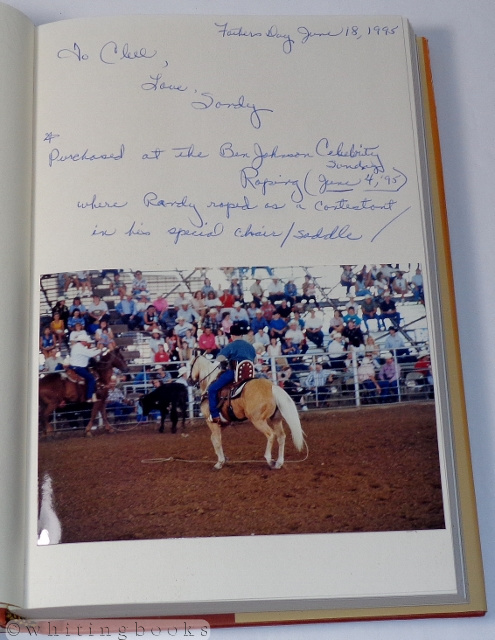 Fathers Day June 18, 1995
To Clell,
Love,
Sandy
* Purchased at the Ben Johnson Celebrity
Sunday
Roping (June 4, '95)
where Randy roped as a contestant
in his special chair/saddle/
©whitingbooks